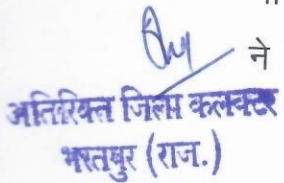 ने
अतिरिक्त जिला कलक्टर
भरतपुर (राज.)